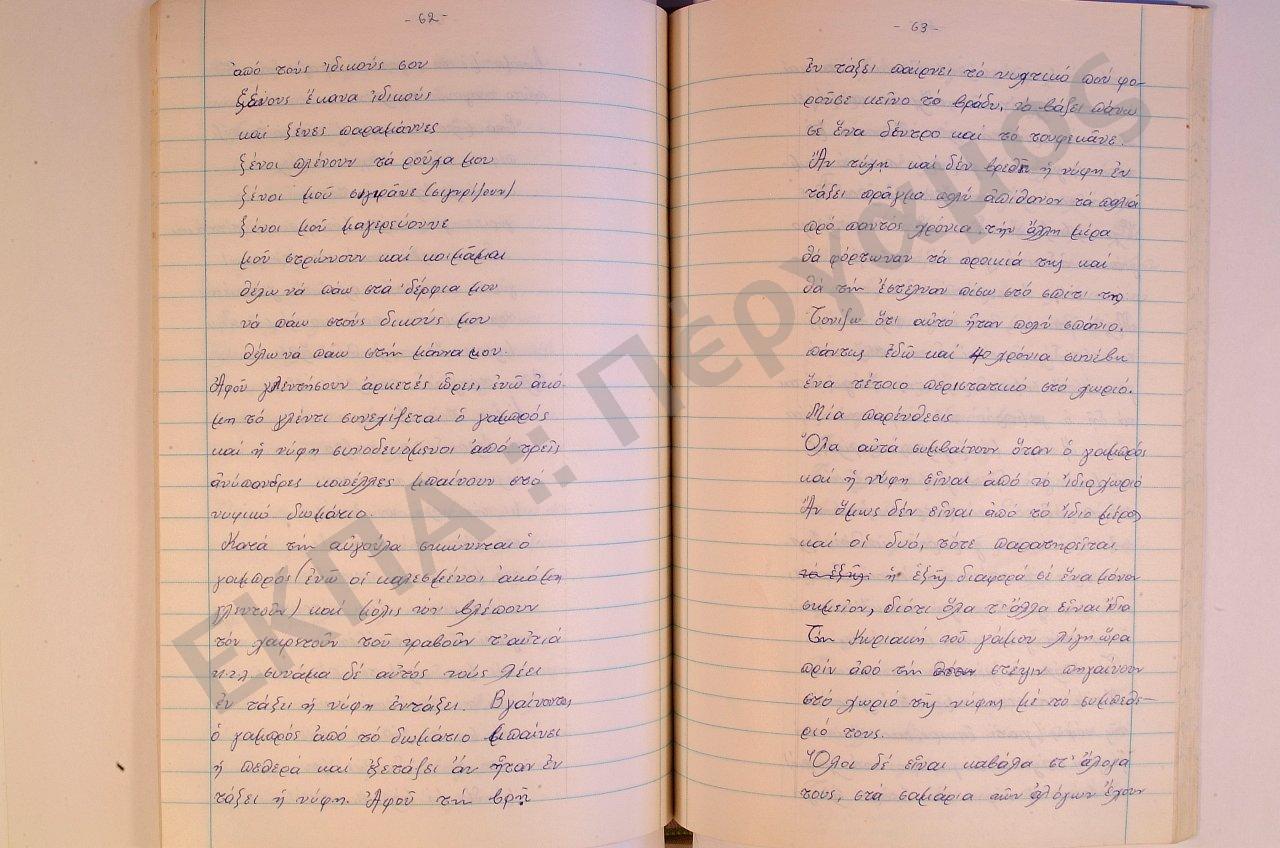 - 62 -
ἀπό τούς ἰδικούς σου
ξένους ἔκανα ἰδικούς
καί ξένες παραμάννες
ξένοι πλένουν τά ροῦχα μου
ξένοι μοῦ συγυράνε (συγυρίζουν)
ξένοι μοῦ μαγερεύουνε
μοῦ στρώνουν καί κοιμᾶμαι
θέλω νά πάω στά 'δέρφια μου
νά πάω στούς δικούς μου
θέλω νά πάω στήν μάννα μου.
Ἀφοῦ γλεντήσουν ἀρκετές ὧρες, ἐνῶ ἀκό-
μη τό γλέντι συνεχίζεται ὁ γαμπρός
καί ἡ νύφη συνοδευόμενοι ἀπό τρεῖς
ἀνύπανδρες κοπέλλες μπαίνουν στό
νυφικό δωμάτιο.
Κατά τήν αὐγούλα σηκώνεται ὁ
γαμπρός (ἐνῶ οἱ καλεσμένοι ἀκόμη
γλεντοῦν) καί μόλις τόν βλέπουν
τόν χαιρετοῦν τοῦ τραβοῦν τ' αὐτιά
κ.τ.λ. συνάμα δέ αὐτός τούς λέει
ἐν τάξει ἡ νύφη ἐντάξει. Βγαίνοντας
ὁ γαμπρός ἀπό τό δωμάτιο μπαίνει
ἡ πεθερά καί ἐξετάζει ἄν ἦταν ἐν
τάξει ἡ νύφη. Ἀφοῦ τήν βρῆ
- 63 -
ἐν τάξει παίρνει τό νυχτικό πού φο-
ροῦσε κεῖνο τό βράδυ, τό βάζει πάνω
σέ ἕνα δέντρο καί τό τουφεκᾶνε.
Ἄν τύχη καί δέν βρεθῆ ἡ νύφη ἐν
τάξει πρᾶγμα πολύ ἀπίθανον τά παλιά
πρό παντός χρόνια, τήν ἄλλη μέρα
θά φόρτωναν τά προικιά της καί
θά τήν ἔστελναν πίσω στό σπίτι της
Τονίζω ὅτι αὐτό ἦταν πολύ σπάνιο,
πάντως ἐδῶ καί 40 χρόνια συνέβη
ἕνα τέτοιο περιστατικό στό χωριό.
Μία παρένθεσις
Ὅλα αὐτά συμβαίνουν ὅταν ὁ γαμπρός
καί ἡ νύφη εἶναι ἀπό τό ἴδιο χωριό
Ἄν ὅμως δέν εἶναι ἀπό τό ἴδιο μέρος
καί οἱ δυό, τότε παρατηρεῖται
τό ἑξῆς: ἡ ἑξῆς διαφορά σέ ἕνα μόνον
σημεῖον, διότι ὅλα τ' ἄλλα εἶναι ἴδια
Τήν Κυριακή τοῦ γάμου λίγη ὥρα
πρίν ἀπό τήν στέψιν πηγαίνουν
στό χωριό τῆς νύφης μέ τό συμπεθε-
ριό τους.
Ὅλοι δέ εἶναι καβάλα στ' ἄλογά
τους, στά σαμάρια τῶν ἀλόγων ἔχουν
ΕΚΠΑ :: Πέργαμος